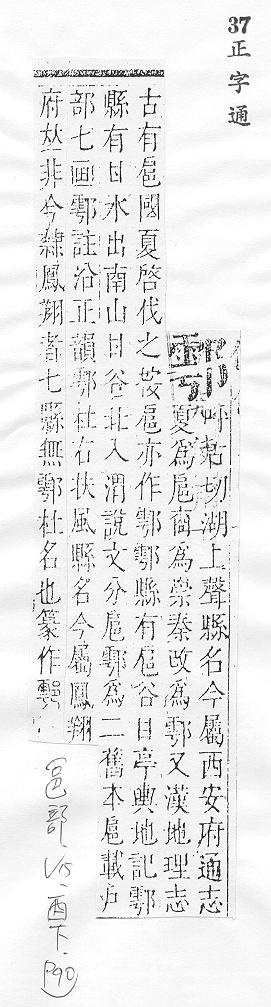 37
正字通
鄠
呼古切湖上聲縣名今屬西安府通志
夏為扈商為崇秦改為鄠又漢地理志
古有扈國夏啓伐之扈亦作鄠鄠縣有扈谷甘亭輿地記鄠
縣有甘水出南山甘谷北入渭說文分扈鄠為二舊本扈載戶
部七画鄠註沿正韻鄠杜右扶風縣名今屬鳳翔
府𠀤非今隸鳳翔者七縣無鄠杜名也篆作
邑部 V5、酉下、P90